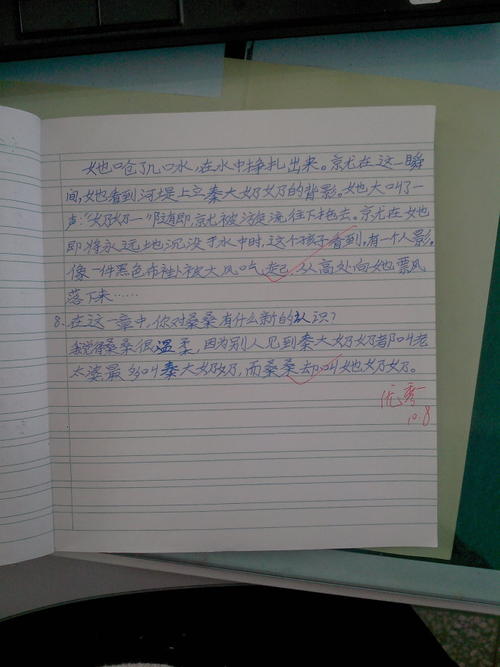 她呛了几口水,在水中挣扎出来。京尤在这一瞬
间,她看到河堤上立秦大奶奶的背影。她大叫了一
声:“奶奶—”随即,京尤被漩流往下拖去。京尤在她
即将永远地沉没于水中时,这个孩子看到,有一个人影,
像一件黑色布褂被大风吹起,从高处向她飘风
落下来……
8.在这一章中,你对桑桑有什么新的认识?
我觉得桑桑很温柔,因为别人见到秦大奶奶都叫老
太婆最多叫秦大奶奶,而桑桑却叫她奶奶。
优秀
10.8